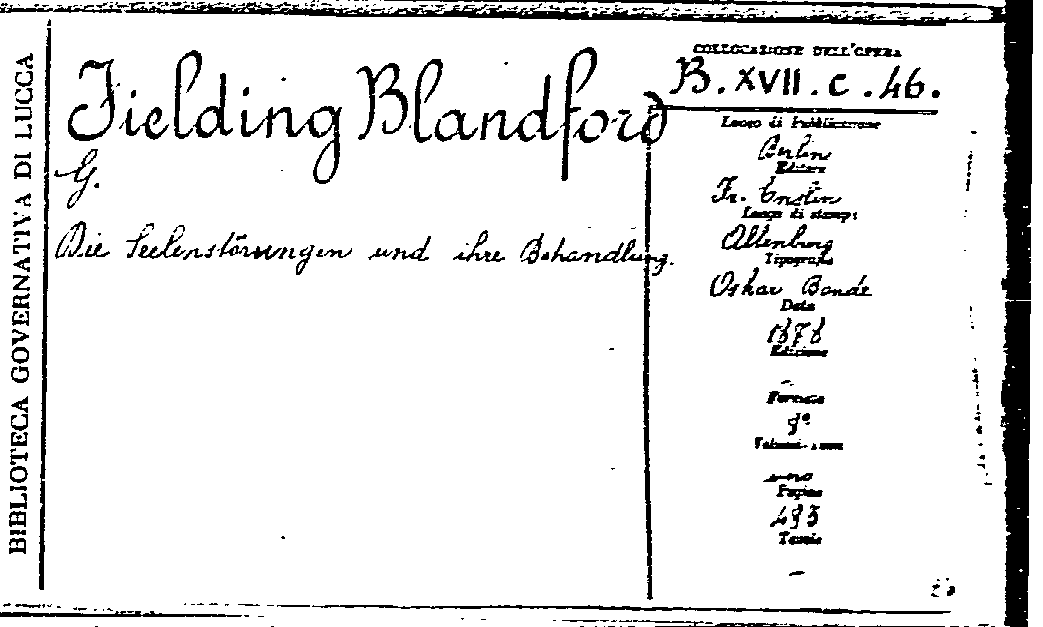 BIBLIOTECA GOVERNATIVA DI LUCCA
Fielding Blandford
G.
Die Seelenstörungen und ihre Behandlung.
COLLOCAZIONE DELL'OPERA
B. XVII. C. 46.
Luogo di Pubblicazione
Berlin
Editore
Fr. Enslin
Luogo di stampa
Altenburg
Tipografia
Oskar Bonde
Data
1878
Edizione
-
Formato
8°
Volumi
uno
Pagine
493
Tavole
-